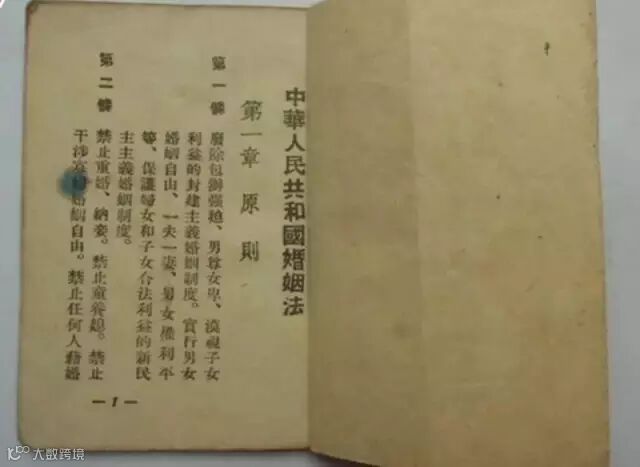 中華人民共和國婚姻法
第一章 原則
第一條 廢除包辦强迫、男尊女卑、漠視子女
利益的封建主義婚姻制度。實行男女
婚姻自由、一夫一妻、男女權利平
等、保護婦女和子女合法利益的新民
主主義婚姻制度。
第二條 禁止重婚、納妾。禁止童養媳。禁止
干涉寡婦婚姻自由。禁止任何人藉婚
—1—
大数跨境